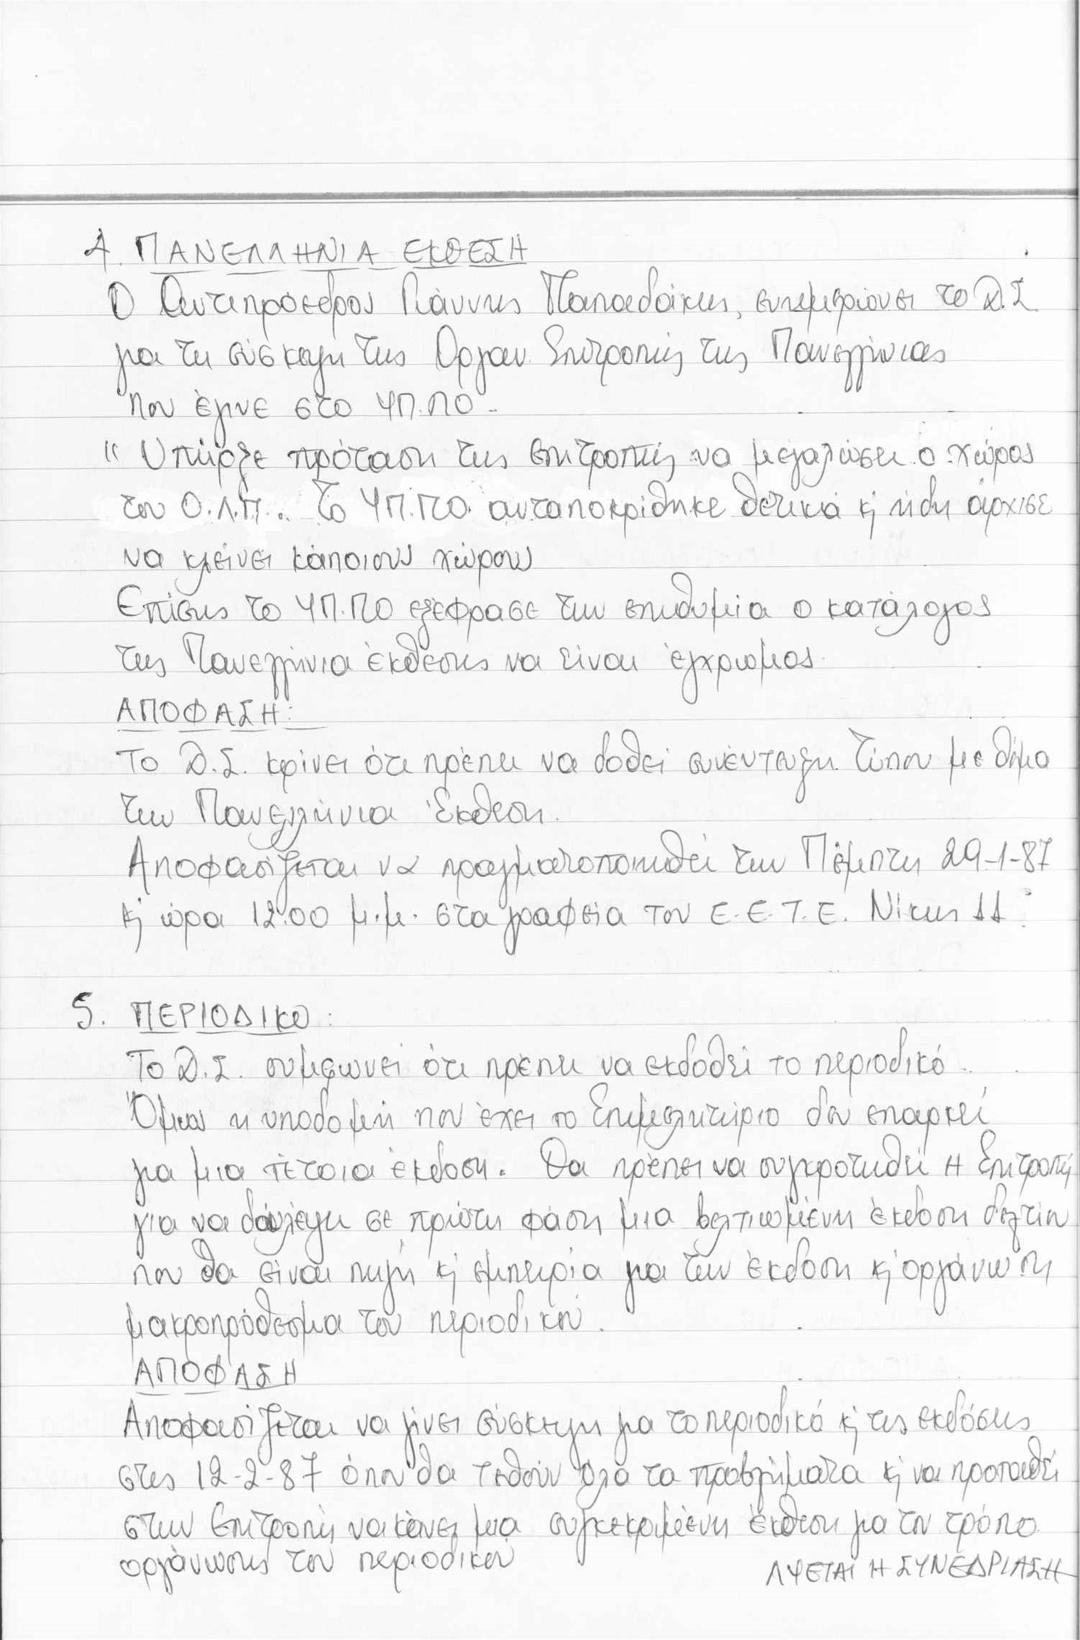 4. ΠΑΝΕΛΛΗΝΙΑ ΕΚΘΕΣΗ
Ο Αντιπρόεδρος Γιάννης Παπαδάκης, ενημερώνει το Δ.Σ.
για τη σύσκεψη της Οργαν. Επιτροπής της Πανελλήνιας
που έγινε στο ΥΠ.ΠΟ.
"Υπήρξε πρόταση της επιτροπής να μεγαλώσει ο χώρος
του Ο.Λ.Π.. Το ΥΠ.ΠΟ. ανταποκρίθηκε θετικά κ ήδη άρχισε
να κλείνει κάποιους χώρους
Επίσης το ΥΠ.ΠΟ εξέφρασε την επιθυμία ο κατάλογος
της Πανελλήνια έκθεσης να είναι έγχρωμος.
ΑΠΟΦΑΣΗ:
Το Δ.Σ. κρίνει ότι πρέπει να δοθεί συνέντευξη τύπου με θέμα
την Πανελλήνια Έκθεση.
Αποφασίζεται να πραγματοποιηθεί την Πέμπτη 29-1-87
κ ώρα 12.00 μ.μ. στα γραφεία του Ε.Ε.Τ.Ε. Νίκης 11
5. ΠΕΡΙΟΔΙΚΟ:
Το Δ.Σ. συμφωνεί ότι πρέπει να εκδοθεί το περιοδικό.
Όμως η υποδομή που έχει το Επιμελητήριο δεν επαρκεί
για μια τέτοια έκδοση. Θα πρέπει να συγκροτηθεί η Επιτροπή
για να δουλέψει σε πρώτη φάση μια βελτιωμένη έκδοση δελτίου
που θα είναι πηγή κ εμπειρία για την έκδοση κ οργάνωση
μακροπρόθεσμα του περιοδικού.
ΑΠΟΦΑΣΗ
Αποφασίζεται να γίνει σύσκεψη για το περιοδικό κ τις εκδόσεις
στις 12-2-87 όπου θα τεθούν όλα τα προβλήματα κ να προταθεί
στην Επιτροπή να κάνει μια συγκεκριμένη έκθεση για τον τρόπο
οργάνωσης του περιοδικού
ΛΥΕΤΑΙ Η ΣΥΝΕΔΡΙΑΣΗ